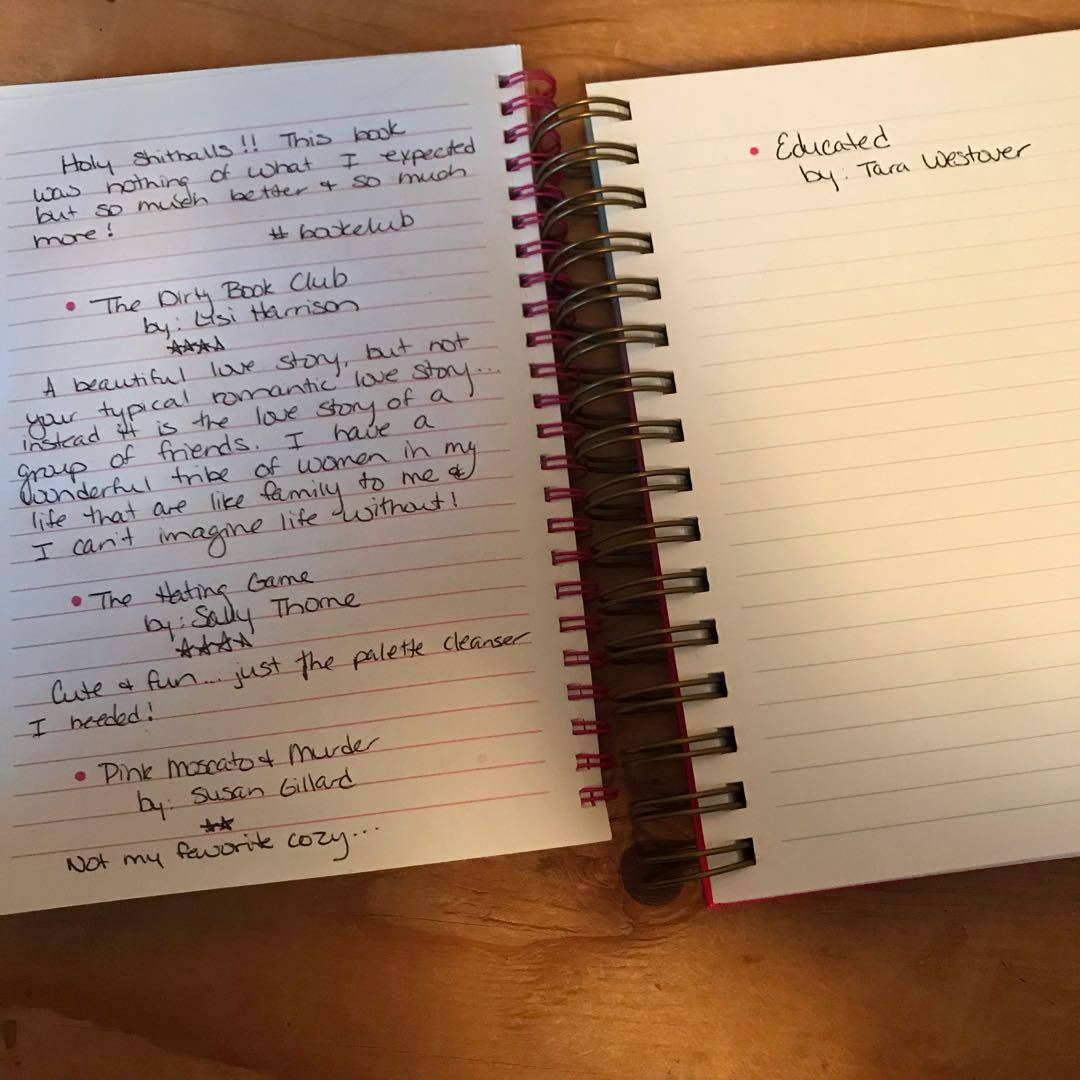 Holy shitballs!! This book
was nothing of what I expected
but so much better & so much
more!
#bookclub
• The Dirty Book Club
by: Lisi Harrison
☆☆☆☆
A beautiful love story, but not
your typical romantic love story...
instead it is the love story of a
group of friends. I have a
wonderful tribe of women in my
life that are like family to me &
I can't imagine life without!
• The Hating Game
by: Sally Thorne
☆☆☆☆
Cute & fun... just the palette cleanser
I needed!
• Pink Moscato & Murder
by: Susan Gillard
☆☆
Not my favorite cozy...
• Educated
by: Tara Westover